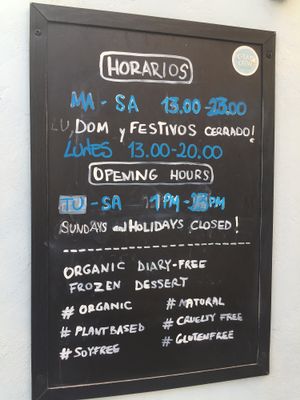 HORARIOS
MA - SA 13.00-23.00
LU, DOM y FESTIVOS CERRADO!
LUNES 13.00-20.00
OPENING HOURS
TU - SA 1PM - PM
SUNDAYS and HOLIDAYS CLOSED!
ORGANIC DIARY-FREE
FROZEN DESSERT
# ORGANIC
# PLANTBASED
# SOYFREE
# NATURAL
# CRUELTY FREE
# GLUTENFREE